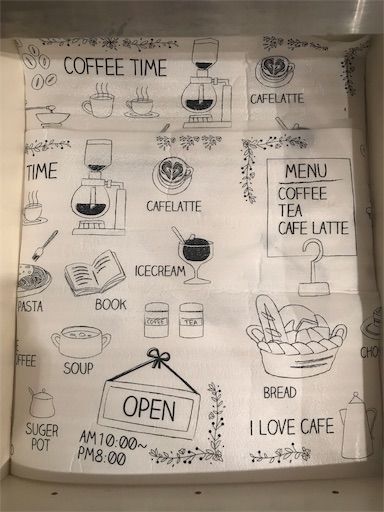 COFFEE TIME
CAFELATTE
TIME
CAFELATTE
MENU
COFFEE
TEA
CAFE LATTE
ICECREAM
PASTA
BOOK
COFFEE
TEA
SOUP
BREAD
OPEN
SUGER
POT
AM10:00~
PM8:00
I LOVE CAFE